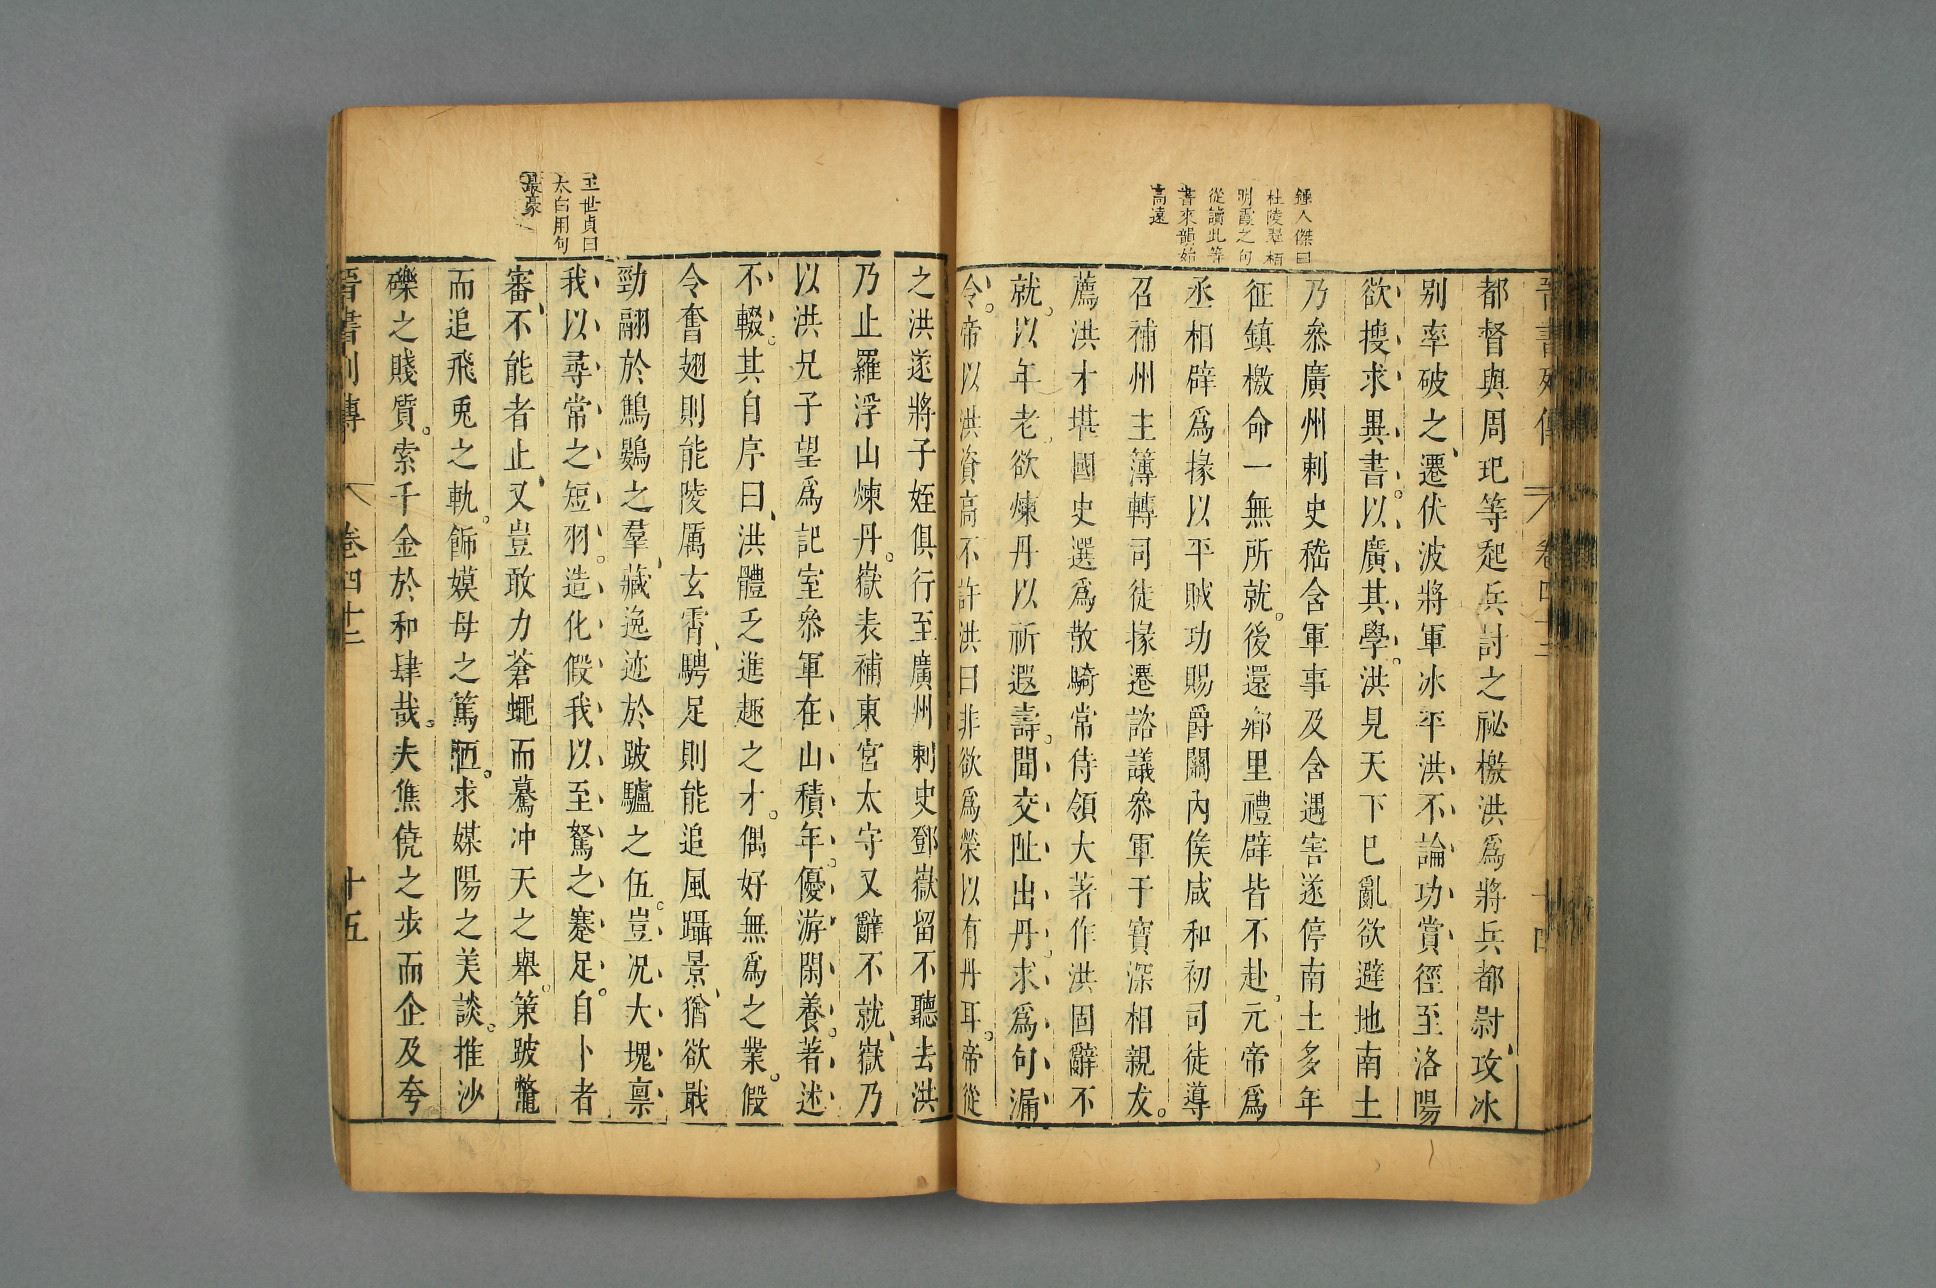 鍾人傑曰
杜陵翠栢
明霞之句
從讀此等
書來韻始
高遠
都督與周玘等起兵討之祕檄洪爲將兵都尉攻冰
别率破之遷伏波將軍冰平洪不論功賞徑至洛陽
欲搜求異書以廣其學洪見天下已亂欲避地南土
乃叅廣州刺史嵇含軍事及含遇害遂停南土多年
征鎮檄命一無所就後還鄉里禮辟皆不赴元帝爲
丞相辟爲掾以平賊功賜爵關內侯咸和初司徒導
召補州主簿轉司徒掾遷諮議叅軍干寶深相親友
薦洪才堪國史選爲散騎常侍領大著作洪固辭不
就以年老欲煉丹以祈遐壽聞交阯出丹求爲句漏
令帝以洪資高不許洪曰非欲爲榮以有丹耳帝從
王世貞曰
太白用句
最豪
之洪遂將子姪俱行至廣州刺史鄧嶽留不聽去洪
乃止羅浮山煉丹嶽表補東宮太守又辭不就嶽乃
以洪兄子望爲記室叅軍在山積年優游閑養著述
不輟其自序曰洪體乏進趣之才偶好無爲之業假
令奮翅則能陵厲玄霄騁足則能追風躡景猶欲戢
勁翮於鷦鷃之羣藏逸迹於跛驢之伍豈况大塊禀
我以尋常之短羽造化假我以至駑之蹇足自卜者
審不能者止又豈敢力蒼蠅而慕冲天之舉策跛鼈
而追飛兎之軌飾嫫母之篤陋求媒陽之美談推沙
礫之賤質索千金於和肆哉夫僬僥之步而企及夸
晉書列傳 卷四十二 十五